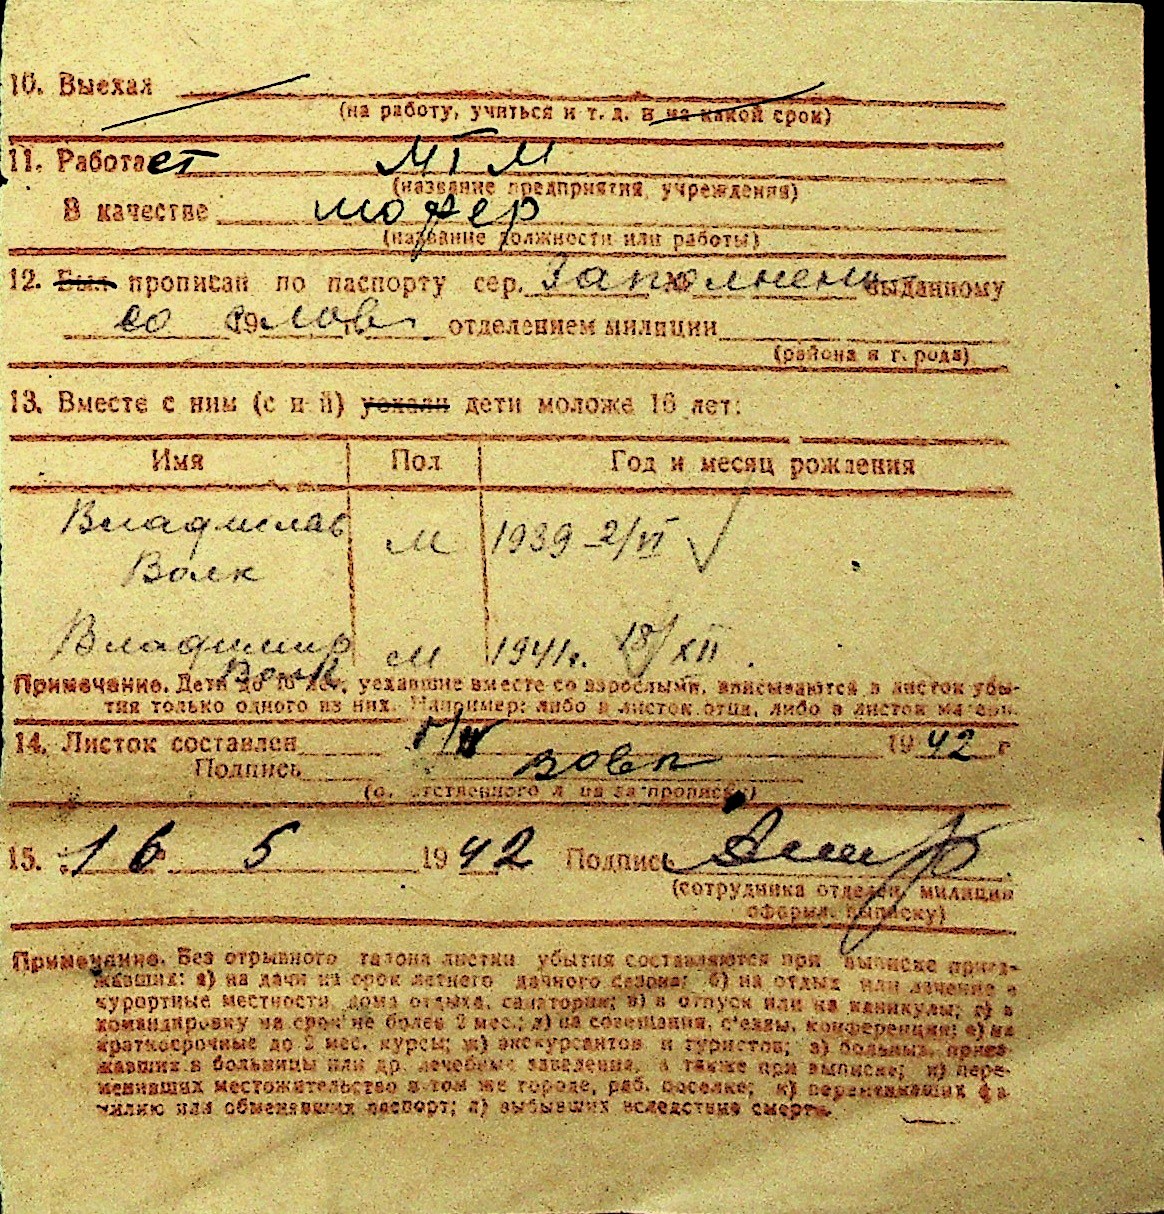 10. Выехал
(на работу, учиться и т. д. и на какой срок)
11. Работает МТМ
(название предприятия, учреждения)
В качестве шофер
(название должности или работы)
12. Был прописан по паспорту сер. Заполнено выданному
со слов 19 отделением милиции
(района и города)
13. Вместе с ним (с ней) уехали дети моложе 16 лет:
Имя Пол Год и месяц рождения
Владислав М 1939 - 2/VI
Волк
Владимир М 1941 г. 18/XII.
Волк
Примечание. Дети до 16 лет, уехавшие вместе со взрослыми, вписываются в листок убы-
тия только одного из них. Например: либо в листок отца, либо в листок матери.
14. Листок составлен 1942 г
Подпись
(ответственного лица за прописку)
15. 16 5 1942 Подпись
(сотрудника отделен. милиции
оформл. выписку)
Примечание. Без отрывного талона листки убытия составляются при выписке приез-
жавших: а) на дачи на срок летнего дачного сезона; б) на отдых или лечение в
курортные местности, дома отдыха, санатории; в) в отпуск или на каникулы; г) в
командировку на срок не более 2 мес.; д) на совещания, с'езды, конференции; е) на
краткосрочные до 2 мес. курсы; ж) экскурсантов и туристов; з) больных, приез-
жавших в больницы или др. лечебные заведения, а также при выписке; и) пере-
менивших местожительство в том же городе, раб. поселке; к) переменивших фа-
милию или обменявших паспорт; л) выбывших вследствие смерти.